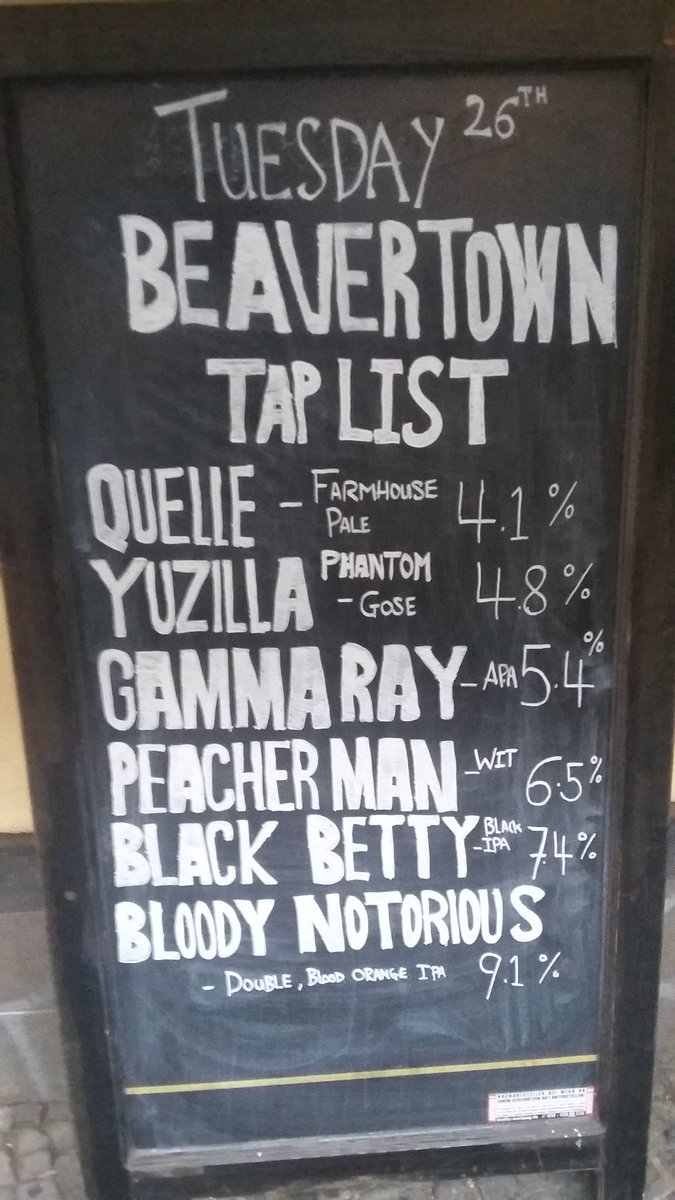 TUESDAY 26TH
BEAVERTOWN
TAP LIST
QUELLE - FARMHOUSE PALE 4.1%
YUZILLA PHANTOM - GOSE 4.8%
GAMMA RAY - APA 5.4%
PEACHER MAN - WIT 6.5%
BLACK BETTY - BLACK IPA 7.4%
BLOODY NOTORIOUS
- DOUBLE, BLOOD ORANGE IPA 9.1%